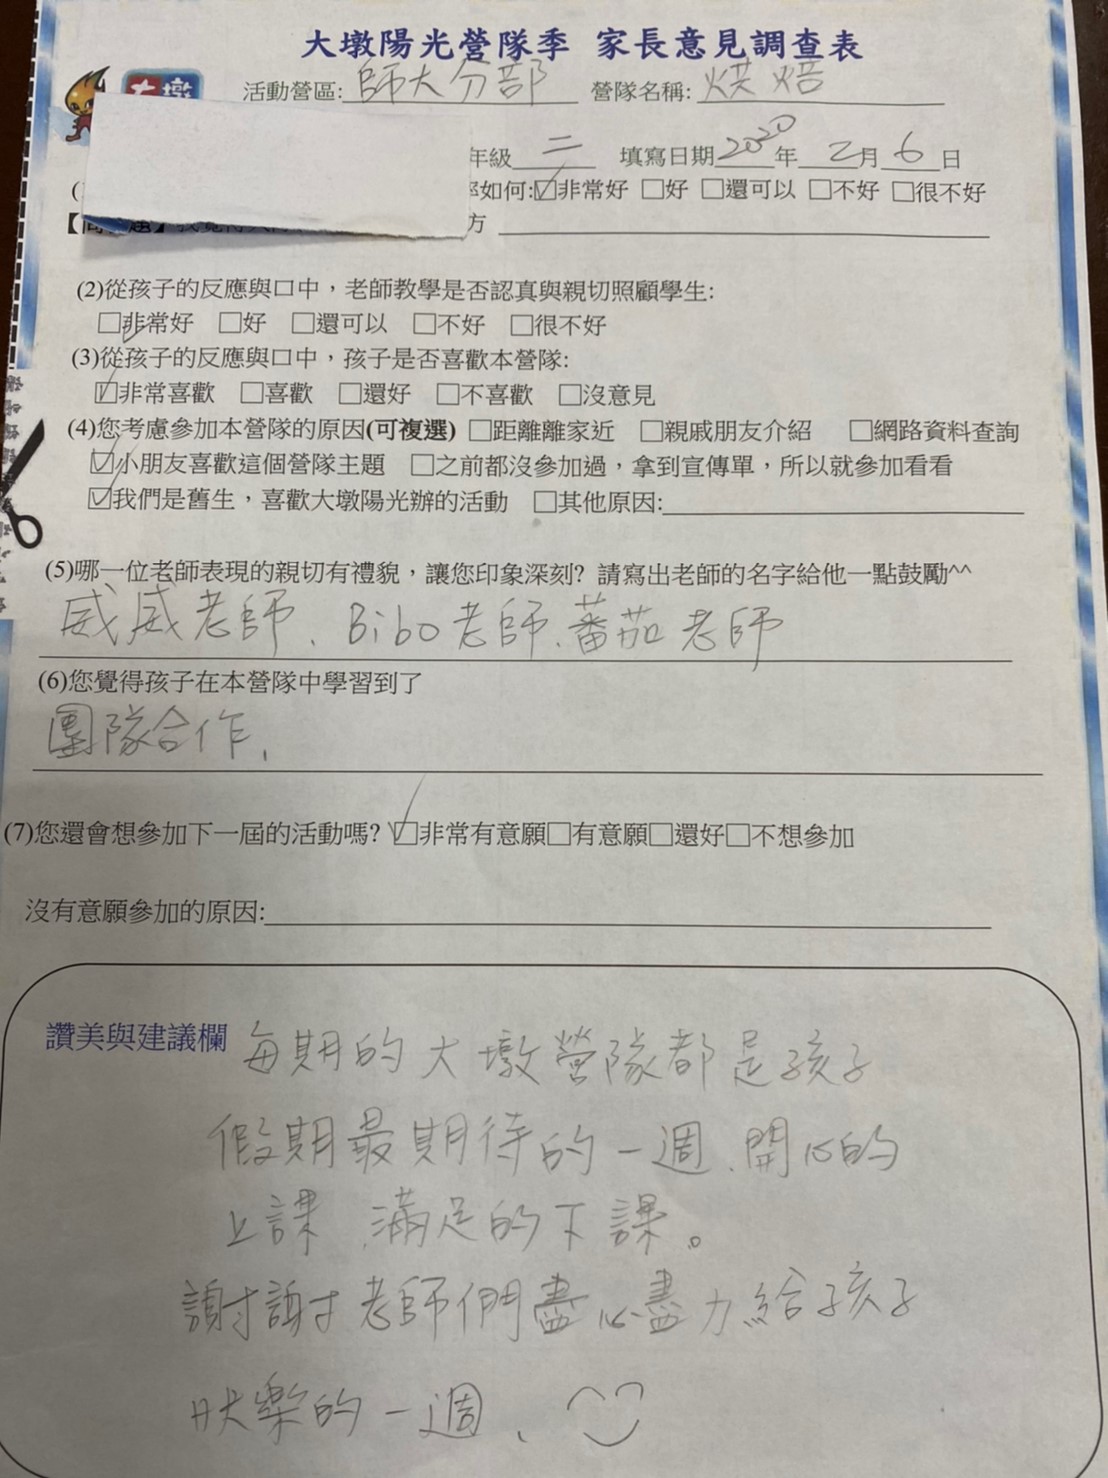 大墩陽光營隊季 家長意見調查表
大墩
活動營區:師大分部 營隊名稱:烘焙
年級二 填寫日期2020年2月6日
如何:☑非常好 □好 □還可以 □不好 □很不好
方
(2)從孩子的反應與口中，老師教學是否認真與親切照顧學生:
☑非常好 □好 □還可以 □不好 □很不好
(3)從孩子的反應與口中，孩子是否喜歡本營隊:
☑非常喜歡 □喜歡 □還好 □不喜歡 □沒意見
(4)您考慮參加本營隊的原因(可複選) □距離離家近 □親戚朋友介紹 □網路資料查詢
☑小朋友喜歡這個營隊主題 □之前都沒參加過，拿到宣傳單，所以就參加看看
☑我們是舊生，喜歡大墩陽光辦的活動 □其他原因:
(5)哪一位老師表現的親切有禮貌，讓您印象深刻? 請寫出老師的名字給他一點鼓勵^^
威威老師、Bibo老師、蕃茄老師
(6)您覺得孩子在本營隊中學習到了
團隊合作,
(7)您還會想參加下一屆的活動嗎? ☑非常有意願□有意願□還好□不想參加
沒有意願參加的原因:
讚美與建議欄 每期的大墩營隊都是孩子
假期最期待的一週、開心的
上課、滿足的下課。
謝謝老師們盡心盡力給孩子
快樂的一週、